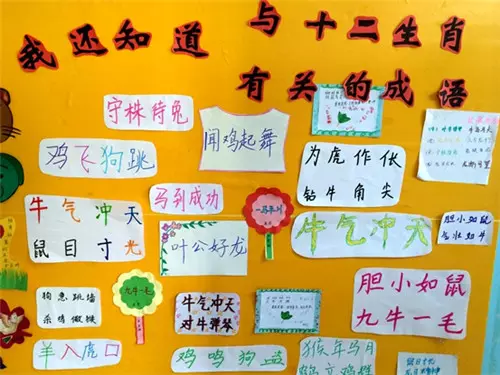 我还知道
与十二生肖
有关的成语
守株待兔
鸡飞狗跳
闻鸡起舞
为虎作伥
钻牛角尖
马到成功
牛气冲天
鼠目寸光
叶公好龙
一马平川
牛气冲天
胆小如鼠
气壮如牛
狗急跳墙
杀鸡儆猴
九牛一毛
牛气冲天
对牛弹琴
胆小如鼠
九牛一毛
羊入虎口
鸡鸣狗盗
猴年马月
鹤立鸡群
鼠目寸光